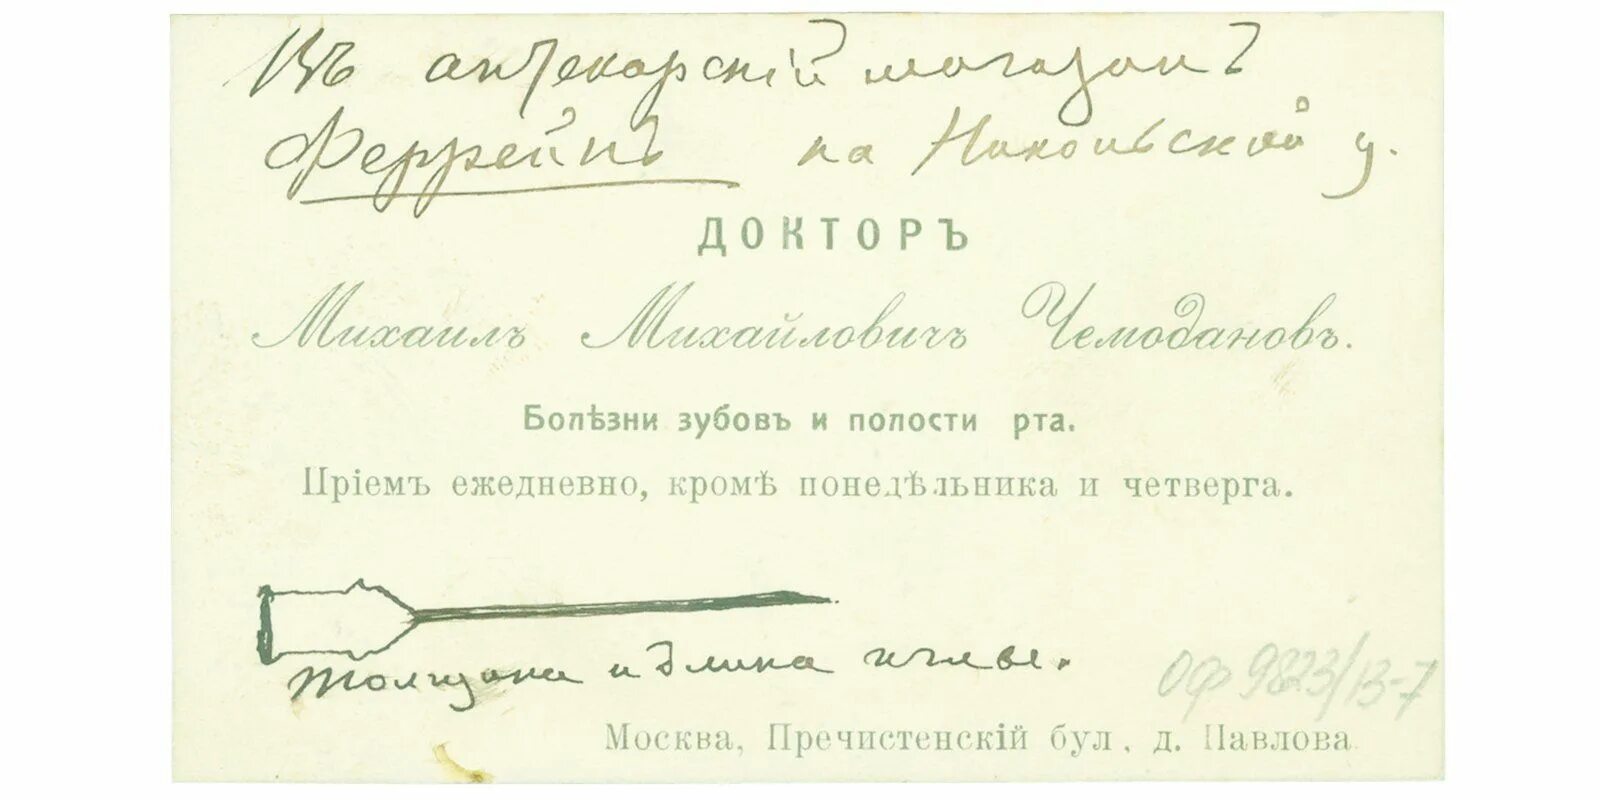 Въ аптекарскій магазинъ
Феррейнъ на Никольской у.
ДОКТОРЪ
Михаилъ Михайловичъ Чемодановъ.
Болѣзни зубовъ и полости рта.
Пріемъ ежедневно, кромѣ понедѣльника и четверга.
толщина и длина иглы.
ОФ 9823/13-7
Москва, Пречистенскій бул., д. Павлова